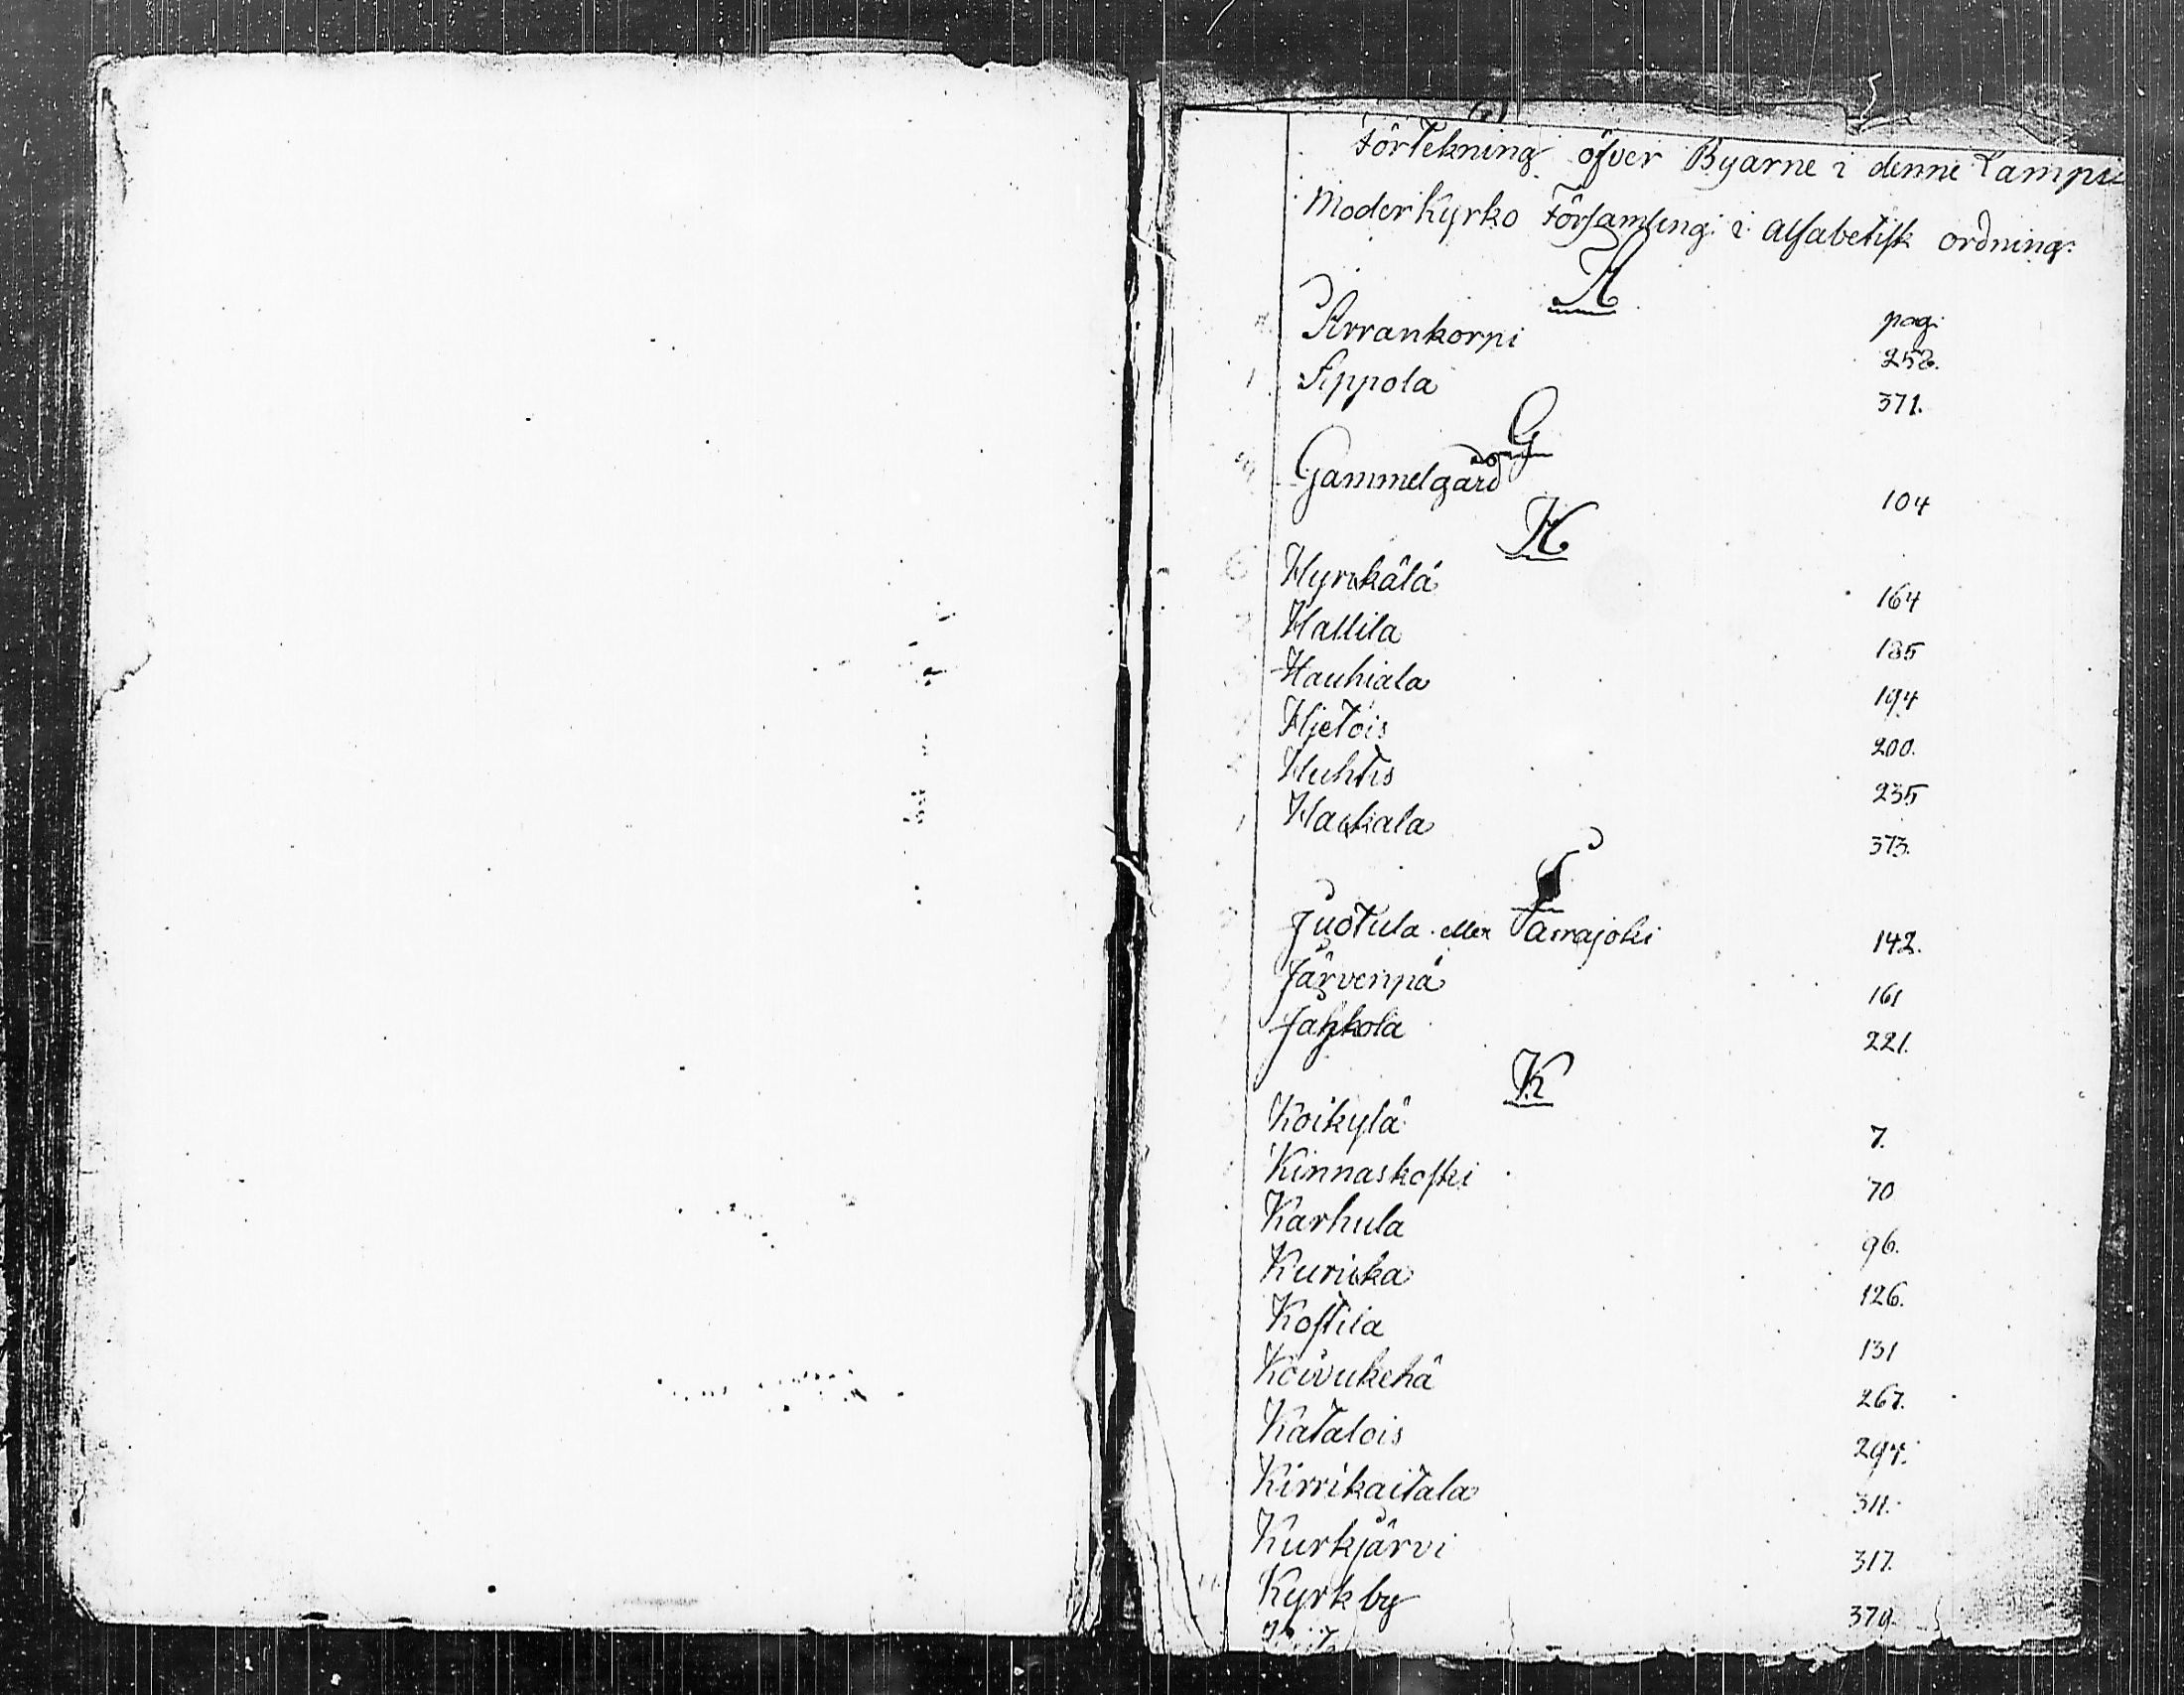 Förtekning öfver Byarne i denne Lampis
Moderkyrko Församling i alfabetisk ordning.
A
pag:
Arrankorpi 252.
Appola 371.
G
Gammelgård 104
H
Hyrikälä 164
Hallila 185
Hauhiala 194
Hietois 200.
Huhtis 235
Haukala 373.
J
Juotula eller Tarrajoki 142.
Järvenpä 161
Jahkola 221.
K
Koikylä 7.
Kinnaskoski 70
Karhula 96.
Kurikka 126.
Kostila 131
Koivukehä 267.
Katalois 297.
Kirrikaitala 311.
Kurkjärvi 317.
Kyrkby 379.